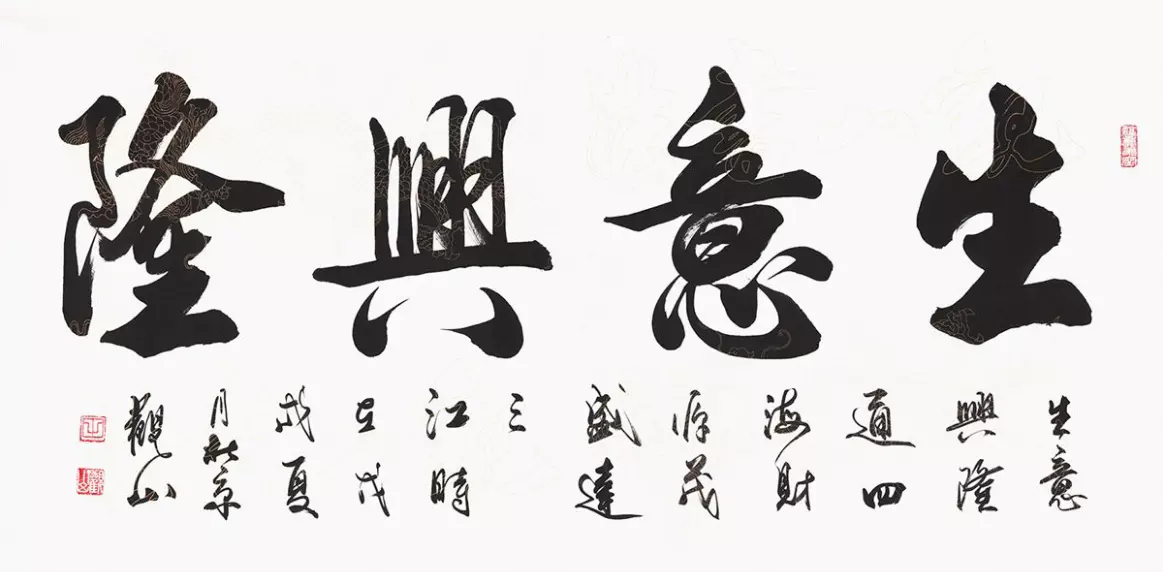 生意興隆
生意
興隆
通四
海財
源茂
盛達
三
江時
在戊
戌夏
月於京
觀山